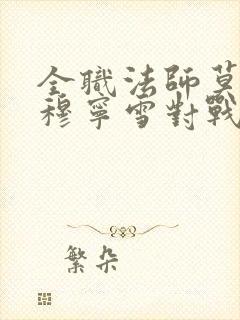 全職法師莫
穆寧雪對戰
繁朵